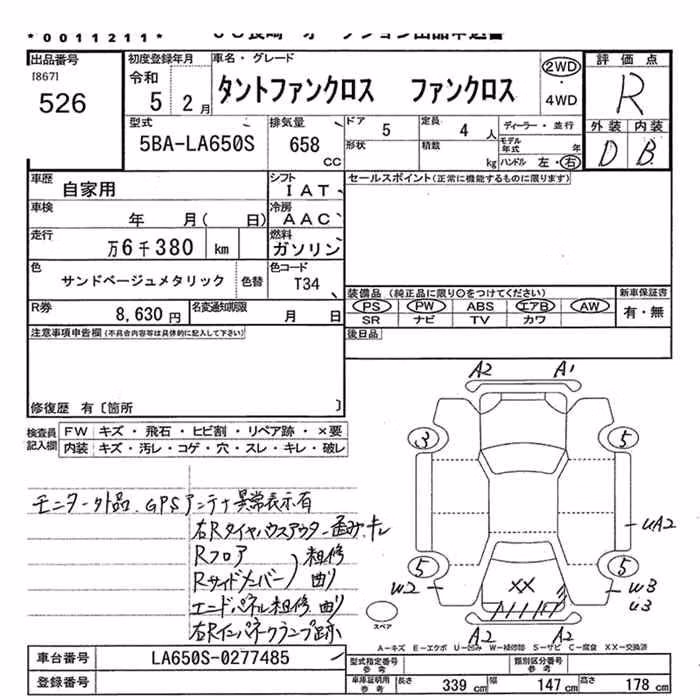 *0011211*
出品番号
[867]
526
初度登録年月
令和
5 2月
車名・グレード
タントファンクロス ファンクロス
2WD
・
4WD
評価点
R
外装 内装
D B
型式
5BA-LA650S
排気量
658
CC
ドア 5
定員 4 人
ディーラー・並行
形状
積載 kg
モデル年式 年
ハンドル 左・右
車歴 自家用
シフト IAT
セールスポイント(正常に機能するものに限ります)
車検 年 月( 日)
冷房 AAC
走行 万6千380 km
燃料 ガソリン
色 サンドベージュメタリック
色替
色コード T34
R券 8,630円
名変通知期限 月 日
装備品(純正品に限り○をつけてください)
PS PW ABS エアB AW
SR ナビ TV カワ
新車保証書
有・無
後日品
注意事項申告欄(不具合内容等は具体的に記入して下さい)
修復歴 有〔箇所 〕
検査員記入欄
FW キズ・飛石・ヒビ割・リペア跡・×要
内装 キズ・汚レ・コゲ・穴・スレ・キレ・破レ
モニター外品.GPSアンテナ異常表示有
右Rタイヤハウスアウター歪み.キレ
Rフロア
Rサイドメンバー
粗修
曲り
エンドパネル粗修.曲り
右Rインパネクランプ跡
A2 A1
3 5
UA2
5 5
W2 XX W3
U3
A2 A2
スペア
A-キズ E-エクボ U-凹み W-補修跡 S-サビ C-腐食 XX-交換済
車台番号 LA650S-0277485
登録番号
型式指定番号 参考
類別区分番号 参考
車庫証明用 参考
長さ 339 cm 幅 147 cm 高さ 178 cm